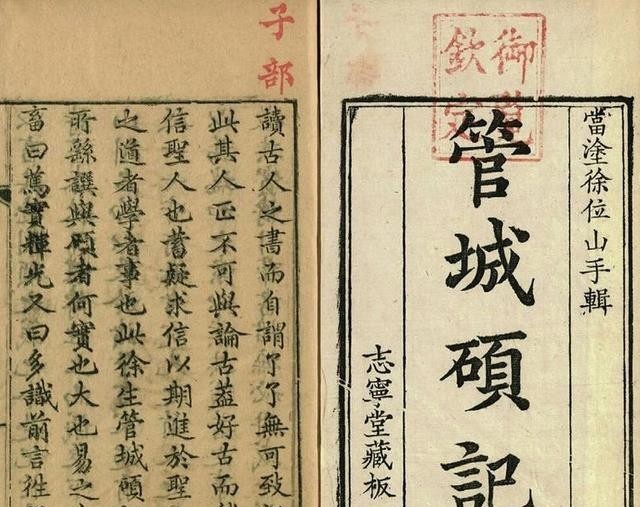 御覽
欽定
當塗徐位山手輯
管城碩記
志寧堂藏板
子部
讀古人之書而自謂了了無可致
此其人正不可與論古葢好古而
信聖人也蓄疑求信以期進於聖
之道者學者事也此徐生管城碩
所繇譔與碩者何實也大也易之
畜曰篤實輝光又曰多識前言徃